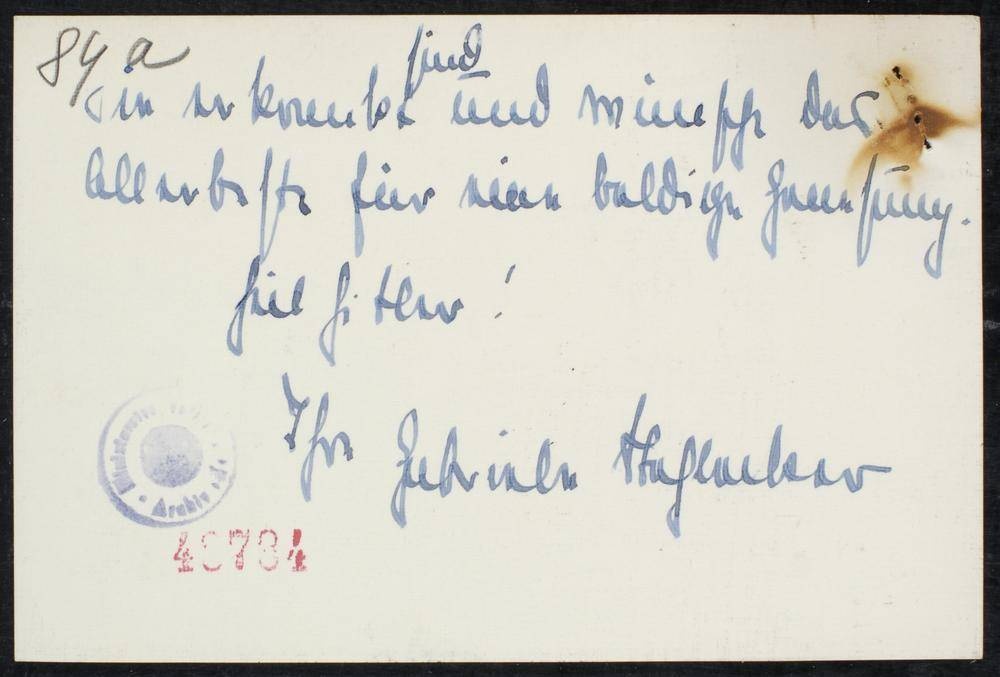 84 a
sind
Sie erkrankt und wünsche das
Allerbeste für eine baldige Genesung.
Heil Hitler!
Ihre Gabriele
Archiv
48784